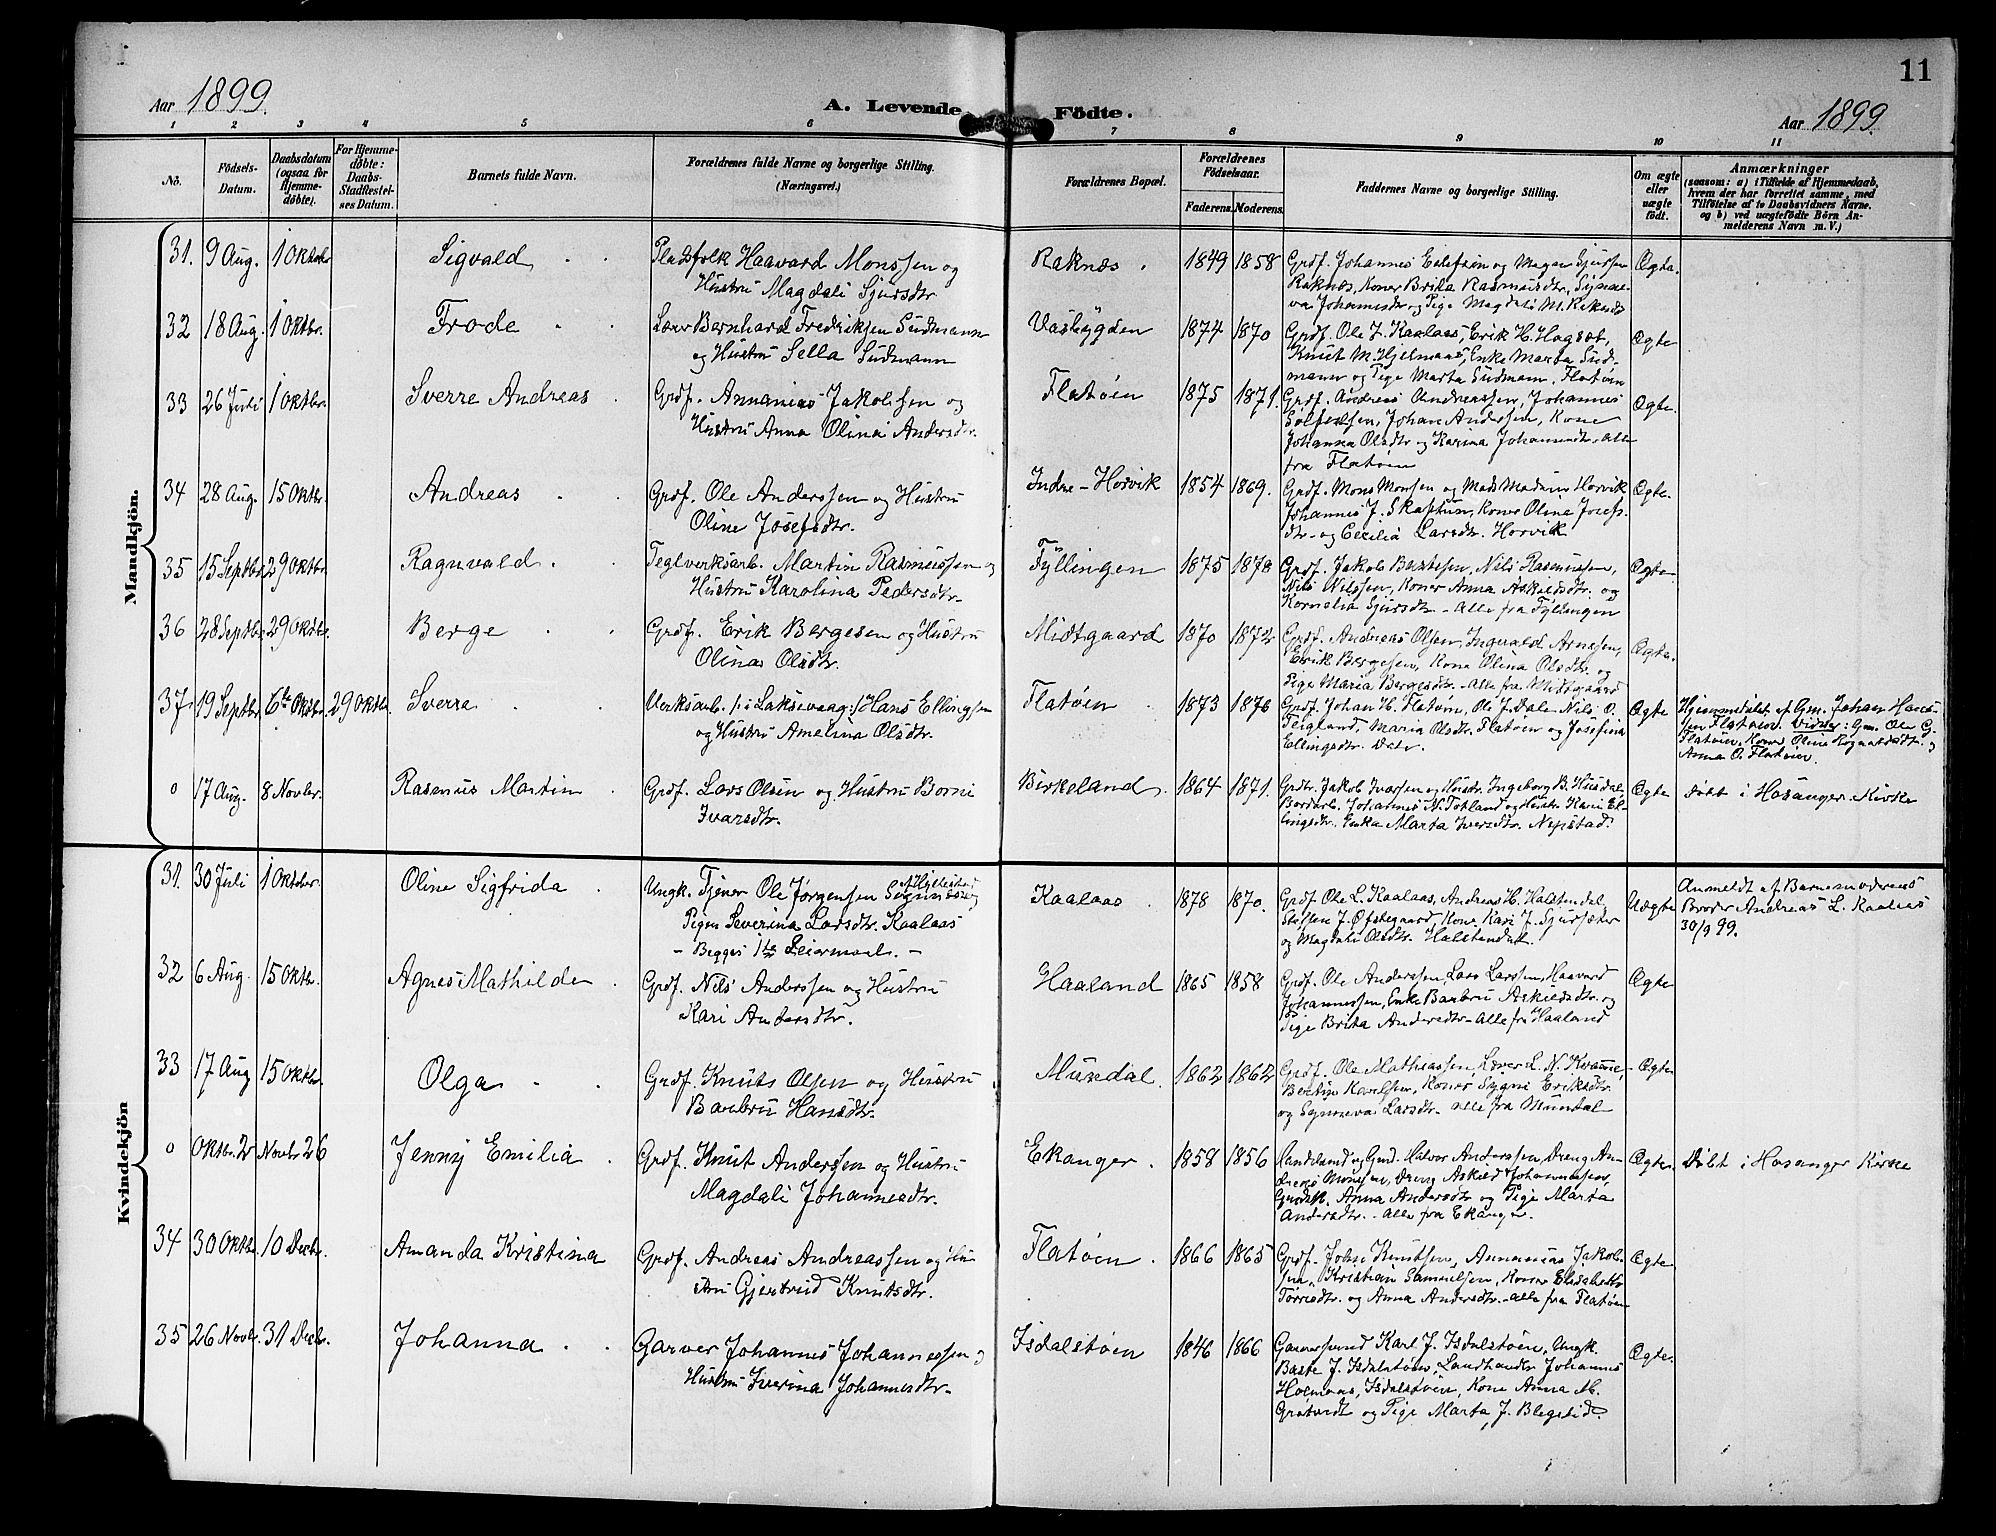 11
Aar 1899.
A. Levende Födte.
Aar 1899
1 2 3 4 5 6 7 8 9 10 11
No.
Födsels-Datum.
Daabsdatum (ogsaa for Hjemme-döbte).
For Hjemme-döbte: Daabs-Stadfæstel-ses Datum.
Barnets fulde Navn.
Forældrenes fulde Navne og borgerlige Stilling.
(Næringsvei.)
Forældrenes Bopæl.
Forældrenes Födselsaar.
Faderens. Moderens.
Faddernes Navne og borgerlige Stilling.
Om ægte eller uægte födt.
Anmærkninger
(saasom: a) i Tilfælde af Hjemmedaab,
hvem der har forrettet samme, med
Tilföielse af to Daabsvidners Navne.
og b) ved uægtefödte Börn An-
melderens Navn m. V.)
Mandkjön.
31. 9 Aug. 1 Oktobr Sigvald Pladsfolk Haavard Monssen og
Hustru Magdali Sjursdtr
Raknæs 1849 1858 Grdf. Johannes og Magne Sjursen
Raknæs, Koner Brita Rasmusdtr, Synne-
va Johannesdtr og Pige Magdali M. Raknæs
Ægte.
32 18 Aug. 1 Oktbr. Frode Lærer Bernhard Fredriksen Sudmann
og Hustru Sella Sudmann
Vasbygden 1874 1870 Grdf. Ole J. Kaalaas, Erik H. Hagset,
Knut M. Hjelmaas, Enke Marta Sud-
mann og Pige Marta Sudmann. Flatøen
Ægte
33 26 Juli 1 Oktbr. Sverre Andreas Grdf. Annanias Jakobsen og
Hustru Anna Olina Andersdtr.
Flatøen 1875 1871. Grdf. Andreas Andreassen, Johannes
Johan Anderssen, Kone
Johanna Olsdtr og Karina Johannesdtr. alle
fra Flatøen
Ægte.
34 28 Aug. 15 Oktbr. Andreas Grdf. Ole Anderssen og Hustru
Oline Josefsdtr.
Indre-Horvik 1854 1869. Grdf. Mons Monsen og Mads Madsen Horvik
Johannes J. Skaftun, Koner Olina Josefs-
dtr. og Cecilia Larsdtr. Horvik
Ægte.
35 15 Septbr 29 Oktbr. Ragnvald Teglverksarb. Martin Rasmussen og
Hustru Karolina Pedersdtr.
Fyllingen 1875 1878 Grdf. Jakob Nils Rasmussen,
Nils Nilssen, Koner Anna Askildsdtr. og
Kornelia Sjursdtr - alle fra Fyllingen
Ægte
36 28 Septbr. 29 Oktbr. Berge Grdf. Erik Bergesen og Hustru
Olina Olsdtr.
Midtgaard 1870 1872 Grdf. Andreas Olsen, Ingvald Arnesen,
Erik Bergesen, Kone Olina Olsdtr. og
Pige Maria Bergesdtr. - alle fra Midtgaard
Ægte.
37 19 Septbr. 6te Oktbr. 29 Oktbr. Sverre Verksarb. /: i Laksevaag :/ Hans Ellingsen
og Hustru Amelina Olsdtr.
Flatøen 1873 1876 Grdf. Johan H. Flatøen, Ole J. Dale Nils O.
Teigland, Maria Olsdtr. Flatøen og Josefina
Ellingsdtr.
Ægte Hjemmedøbt af Gm. Johan Han-
sen Flatøen. Vidner: Gm. Ole G.
Flatøen, Kone Oline og
Anna O. Flatøen.
0 17 Aug. 8 Novbr. Rasmus Martin Grdf. Lars Olsen og Hustru Borni
Ivarsdtr.
Birkeland 1864 1871. Grdbr. Jakob Ivarsen og Hustr. Ingeborg B. Husdal,
Johannes N. Totland og Hustr. Kari El-
lingsdtr. Enke Marta Iversdtr. Nepstad.
Ægte Døbt i Hosanger Kirke
Kvindekjön
31. 30 Juli 1 Oktober. Oline Sigfrida Ungk. Tjener Ole Jørgensen
Pigen Severina Larsdtr. Kaalaas
- Begges 1te Leiermaal. -
Kaalaas 1878 1870. Grdf. Ole L. Kaalaas, Andreas H. Halstendal,
Steffen J. Øfstegaard, Kone Kari J.
og Magdali Olsdtr. Halstendal.
Uægte Anmeldt af Barnemoderens
Broder Andreas L. Kaalaas
30/9 99.
32 6 Aug. 15 Oktbr. Agnes Mathilde Grdf. Nils Anderssen og Hustru
Kari Andersdtr.
Haaland 1865 1858 Grdf. Ole Anderssen, Lars Larssen, Haavard
Johannessen, Enke Barbru Askildsdtr. og
Pige Brita Andersdtr - alle fra Haaland
Ægte
33 17 Aug 15 Oktbr. Olga Grdf. Knut Olsen og Hustru
Barbru Hansdtr.
Mundal. 1862 1862 Grdf. Ole Mathiassen, Lærer L. N. Kvamme,
Koner Sygni Eriksdtr.
og Synneva Larsdtr. alle fra Mundal
Ægte
0 Oktbr. 2 Novbr 26 Jenny Emilia Grdf. Knut Andersen og Hustru
Magdali Johannesdtr.
Ekanger 1858 1856 Halvor Anderssen, Dreng An-
dreas Monssen, Dreng Askild Johannessen,
Anna Andersdtr og Pige Marta
Andersdtr. - alle fra Ekanger.
Ægte. Døbt i Hosanger Kirke
34 30 Oktbr. 10 Decbr. Amanda Kristina Grdf. Andreas Andreassen og Hu-
stru Gjertrud Knutsdtr.
Flatøen 1866 1865 Grdf. John Knutsen, Annanias Jakob-
sen, Kristian Samuelsen, Koner Elisabeth
Torrisdtr. og Anna Andersdtr. - alle fra Flatøen
Ægte
35 26 Novbr. 31 Decbr. Johanna Garver Johannes Johannessen og
Hustru Iverina Johannesdtr.
Isdalstøen 1846 1866 Garversvend Karl J. Isdalstøen, Ungk.
J. Isdalstøen, Landhandler Johannes
Isdalstøen, Kone Anna M.
og Pige Marta J.
Ægte.